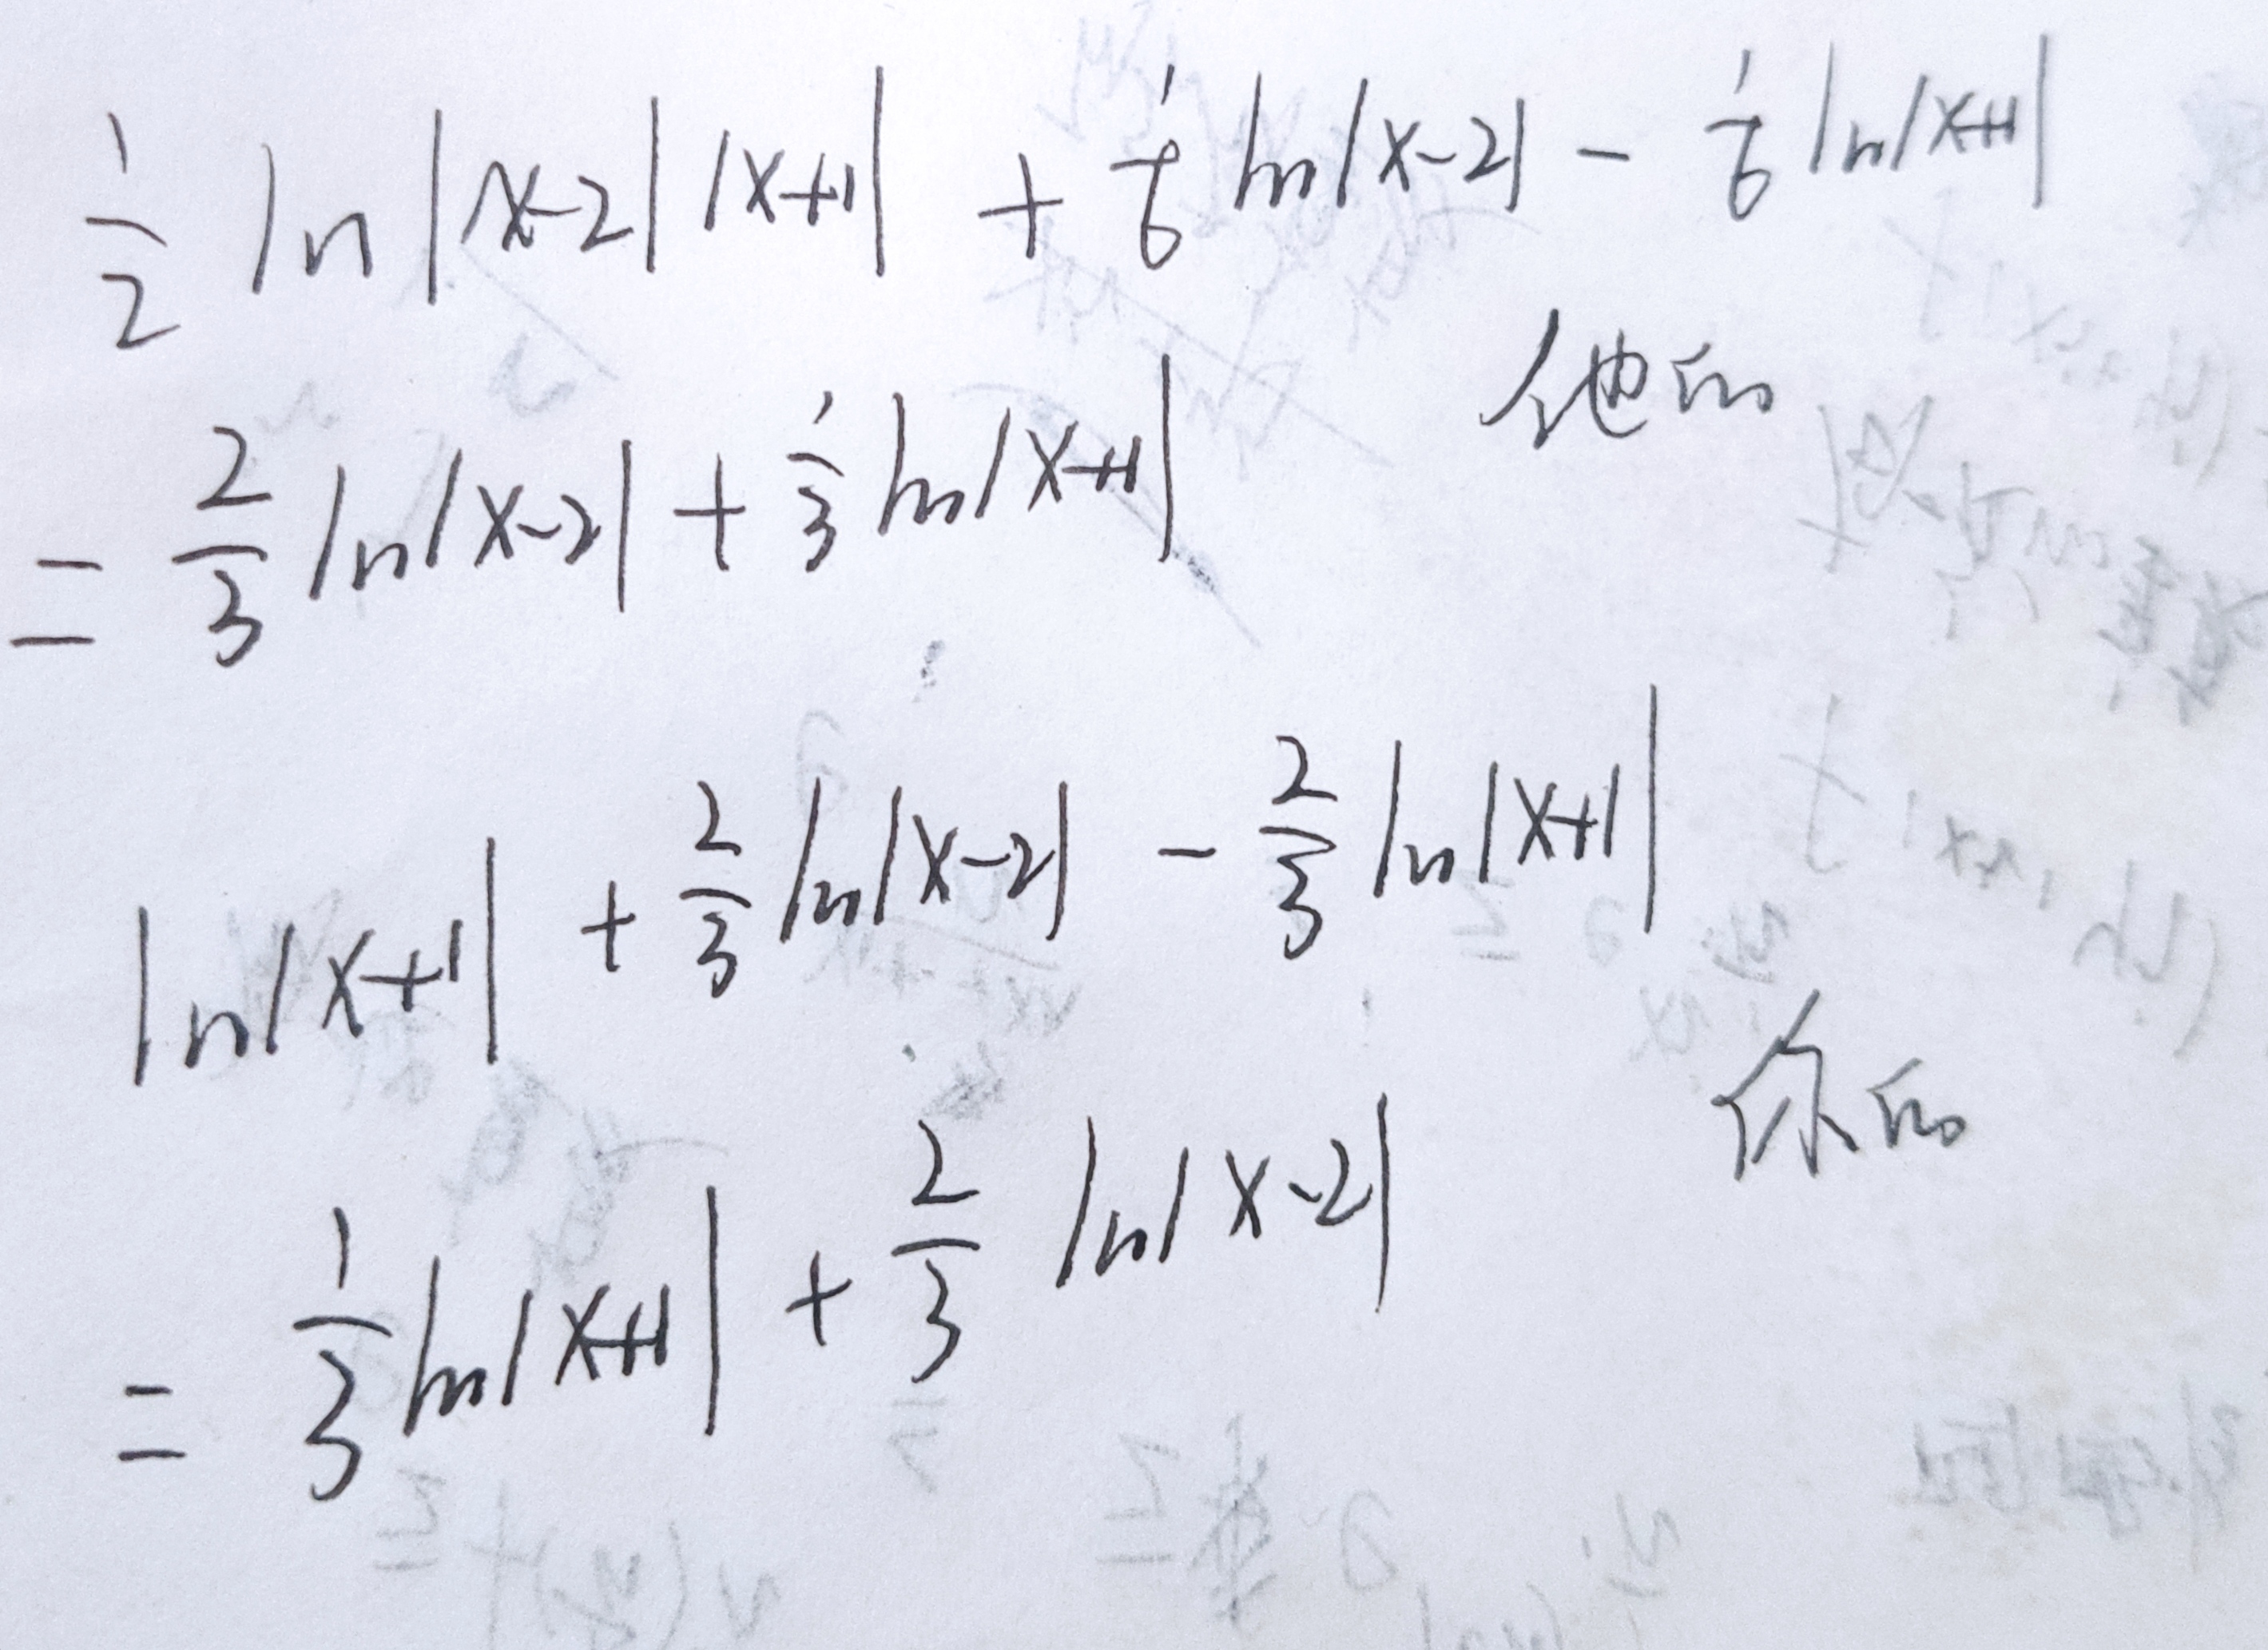 1/2 ln|x-2||x+1| + 1/6 ln|x-2| - 1/6 ln|x+1|
他的
= 2/3 ln|x-2| + 1/3 ln|x+1|
ln|x+1| + 2/3 ln|x-2| - 2/3 ln|x+1|
你的
= 1/3 ln|x+1| + 2/3 ln|x-2|